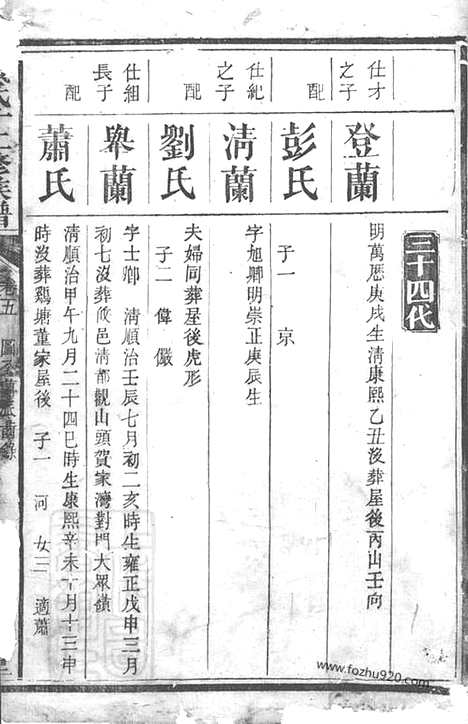 三十四代
仕才之子
登蘭
明萬厯庚戌生清康熙乙丑没葬屋後丙山壬向
配
彭氏
子一 京
仕紀之子
清蘭
字旭卿明崇正庚辰生
配
劉氏
夫婦同葬屋後虎形
子二 偉 儼
仕組長子
舉蘭
字士鄉 清順治壬辰七月初二亥時生雍正戊申三月
初七没葬攸邑清都觀山頭賀家灣對門大眾嶺
配
蕭氏
清順治甲午九月二十四巳時生康熙辛未十月十三申
時没葬鷄塘董家屋後 子一 河 女三 適蕭
修族譜
卷五
www.fozhu920.com